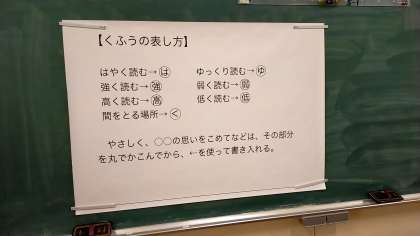 【くふうの表し方】
はやく読む→は ゆっくり読む→ゆ
強く読む→強 弱く読む→弱
高く読む→高 低く読む→低
間をとる場所→く
やさしく、○○の思いをこめてなどは、その部分
を丸でかこんでから、←を使って書き入れる。